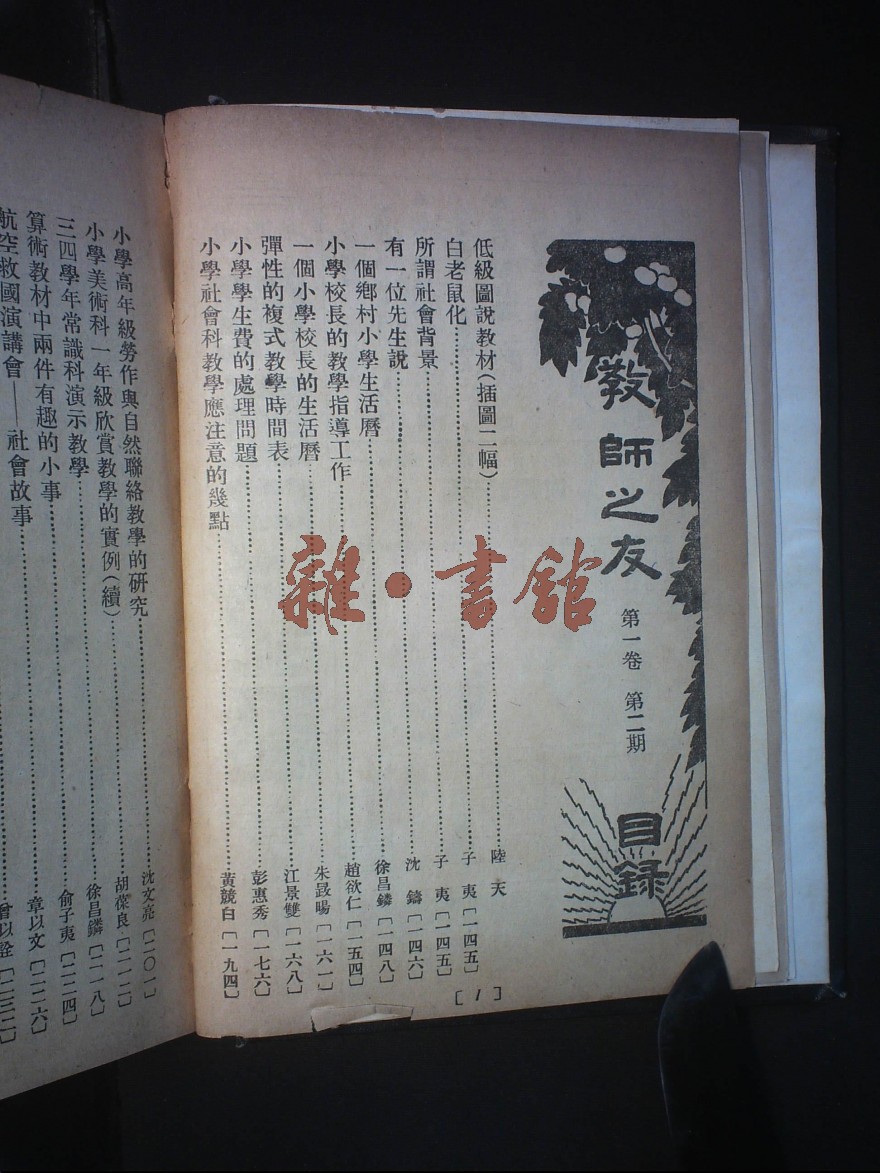 教師之友
第一卷 第二期
目錄
低級圖說教材(插圖二幅)……陸 天
白老鼠化……子 夷[一四五]
所謂社會背景……子 夷[一四五]
有一位先生說……沈 鑄[一四六]
一個鄉村小學生活曆……徐昌鏻[一四八]
小學校長的教學指導工作……趙欲仁[一五四]
一個小學校長的生活曆……朱晸暘[一六一]
彈性的複式教學時間表……江景雙[一六八]
小學學生費的處理問題……彭惠秀[一七六]
小學社會科教學應注意的幾點……黃競白[一九四]
[1]
小學高年級勞作與自然聯絡教學的研究……沈文亮[二〇一]
小學美術科一年級欣賞教學的實例(續)……胡葆良[二一二]
三四學年常識科演示教學……徐昌鏻[二一八]
算術教材中兩件有趣的小事……俞子夷[二二四]
航空救國演講會——社會故事……章以文[二二六]
曾以詮[二三二]
雜·書館